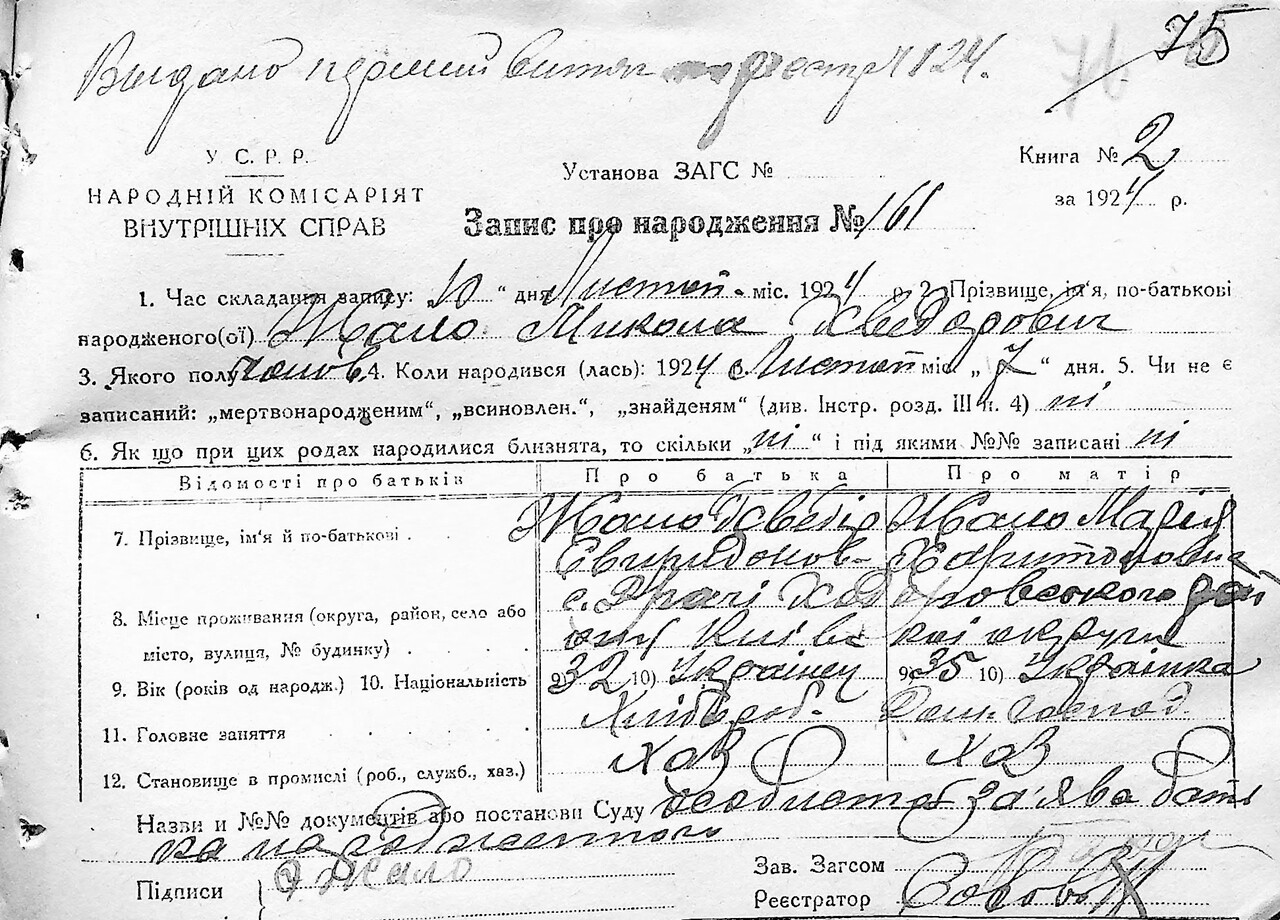 Видано прямий витяг реєстр 1124.
75
У. С. Р. Р.
НАРОДНІЙ КОМІСАРІЯТ
ВНУТРІШНІХ СПРАВ
Установа ЗАГС №
Книга № 2
за 1924 р.
Запис про народження № 161
1. Час складання запису: „10" дня Листоп. міс. 1924 р. 2. Прізвище, ім'я, по-батькові
народженого(ої) Жало Микола Хведорович
3. Якого полу чолов. 4. Коли народився (лась): 1924 р. Листоп міс. „7" дня. 5. Чи не є
записаний: „мертвонародженим", „всиновлен.", „знайденям" (див. Інстр. розд. III п. 4) ні
6. Як що при цих родах народилися близнята, то скільки „ні" і під якими №№ записані ні
Відомості про батьків Про батька Про матір
7. Прізвище, ім'я й по-батькові Жало Хведір Жало Марія
Харитоновна
8. Місце проживання (округа, район, село або с. Ходоровського рай
місто, вулиця, № будинку) ону Київської округи
9. Вік (років од народж.) 10. Національність 9) 32 10) Українец 9) 35 10) Українка
11. Головне заняття Хлібороб. Дом. господ
12. Становище в промислі (роб., служб., хаз.) хаз хаз
Назви и №№ документів або постанови Суду особиста за'ява бать
ка народженого
Підписи Жало
Зав. Загсом
Реєстратор